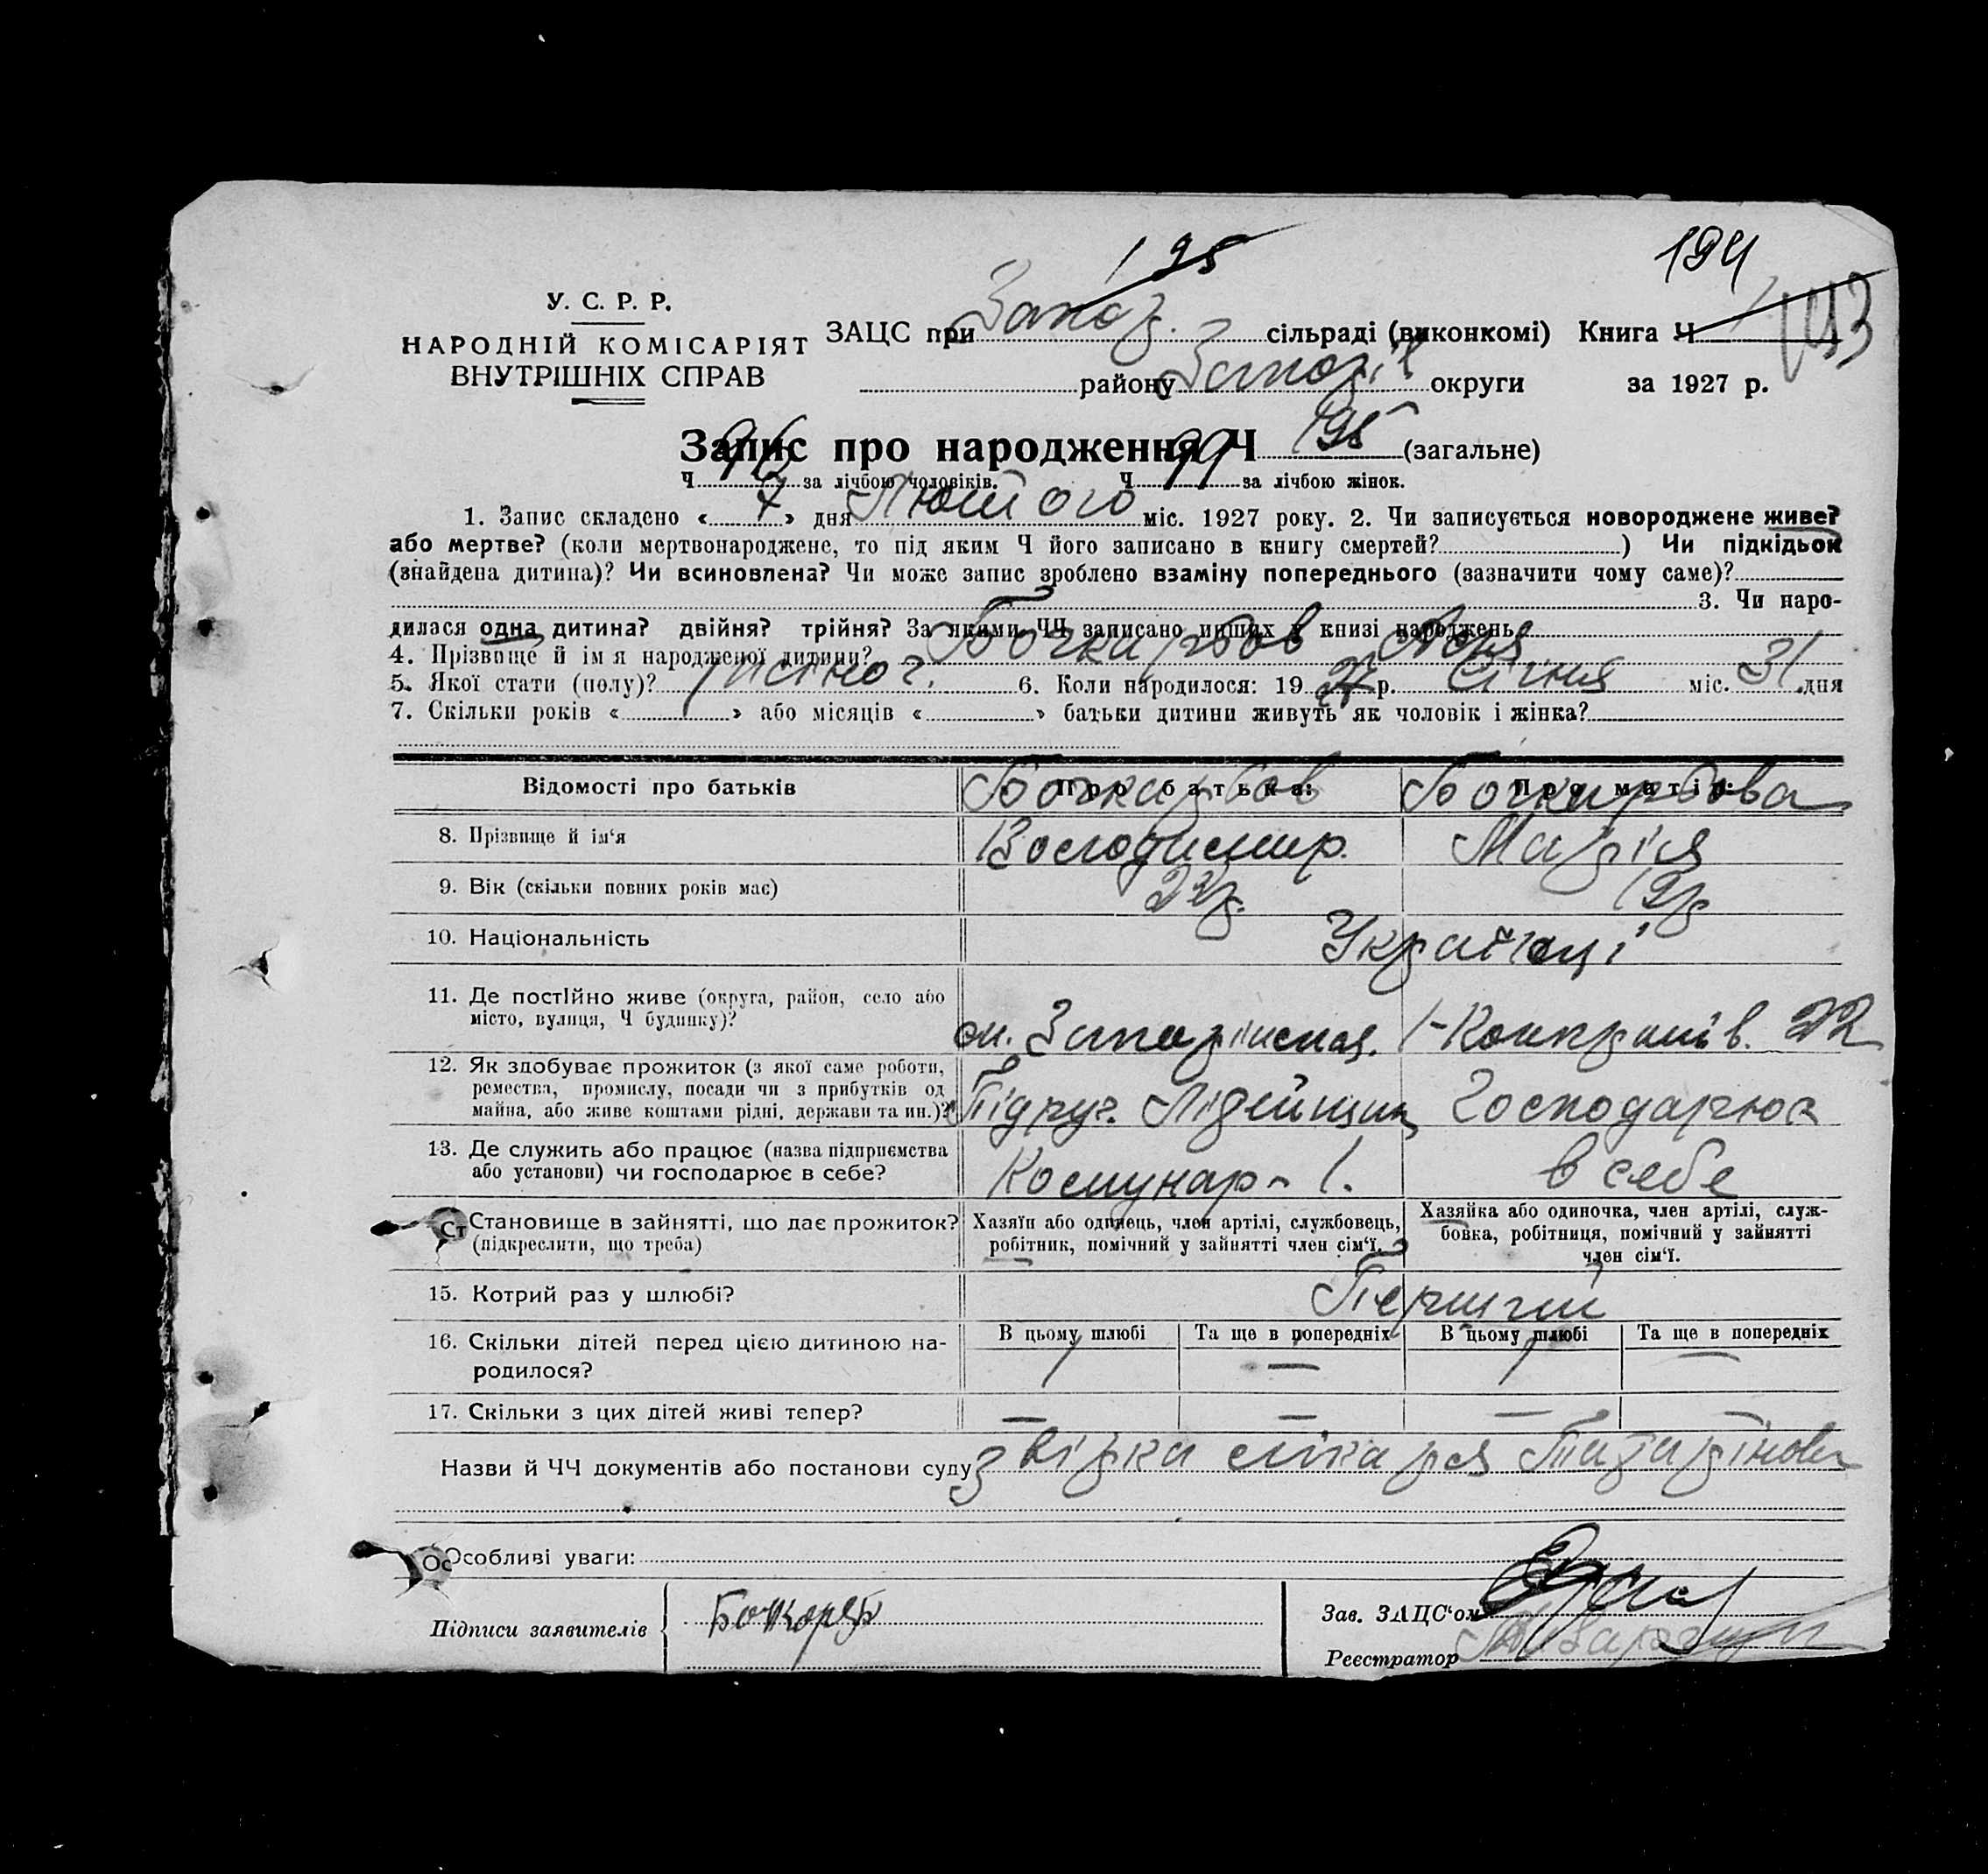 195
194
У. С. Р. Р.
НАРОДНІЙ КОМІСАРІЯТ
ВНУТРІШНІХ СПРАВ
ЗАЦС при Запоз. сільраді (виконкомі) Книга Ч
району округи за 1927 р.
Запис про народження Ч 195 (загальне)
Ч 96 за лічбою чоловіків. Ч 99 за лічбою жінок.
1. Запис складено « 7 » дня Лютого міс. 1927 року. 2. Чи записується новороджене живе?
або мертве? (коли мертвонароджене, то під яким Ч його записано в книгу смертей? ) Чи підкідьок
(знайдена дитина)? Чи всиновлена? Чи може запис зроблено взаміну попереднього (зазначити чому саме)?
3. Чи наро-
дилася одна дитина? двійня? трійня? За якими ЧЧ записано инших у книзі народжень?
4. Прізвище й ім я народженої дитини?
5. Якої стати (полу)? жіноч. 6. Коли народилося: 19 27 р. Січня міс. 31 дня
7. Скільки років « » або місяців « » батьки дитини живуть як чоловік і жінка?
Відомості про батьків Про батька: Про матір:
8. Прізвище й ім'я Володимир. Марія
9. Вік (скільки повних років має) 22 р. 19 р
10. Національність Українці
11. Де постійно живе (округа, район, село або
місто, вулиця, Ч будинку)? 22
12. Як здобуває прожиток (з якої саме роботи,
ремества, промислу, посади чи з прибутків од
майна, або живе коштами рідні, держави та ин.)? Підруч. Господарює
13. Де служить або працює (назва підприємства
або установи) чи господарює в себе? Комунар - 1. в себе
Становище в зайнятті, що дає прожиток?
(підкреслити, що треба)
Хазяїн або одинець, член артілі, службовець,
робітник, помічний у зайнятті член сім'ї.
Хазяйка або одиночка, член артілі, служ-
бовка, робітниця, помічний у зайнятті
член сім'ї.
15. Котрий раз у шлюбі? Перший
16. Скільки дітей перед цією дитиною на-
родилося?
В цьому шлюбі Та ще в попередніх В цьому шлюбі Та ще в попередніх
1 — 1 —
17. Скільки з цих дітей живі тепер? — — — —
Назви й ЧЧ документів або постанови суду лікаря
Особливі уваги:
Підписи заявителів
Зав. ЗАЦС'ом
Реєстратор